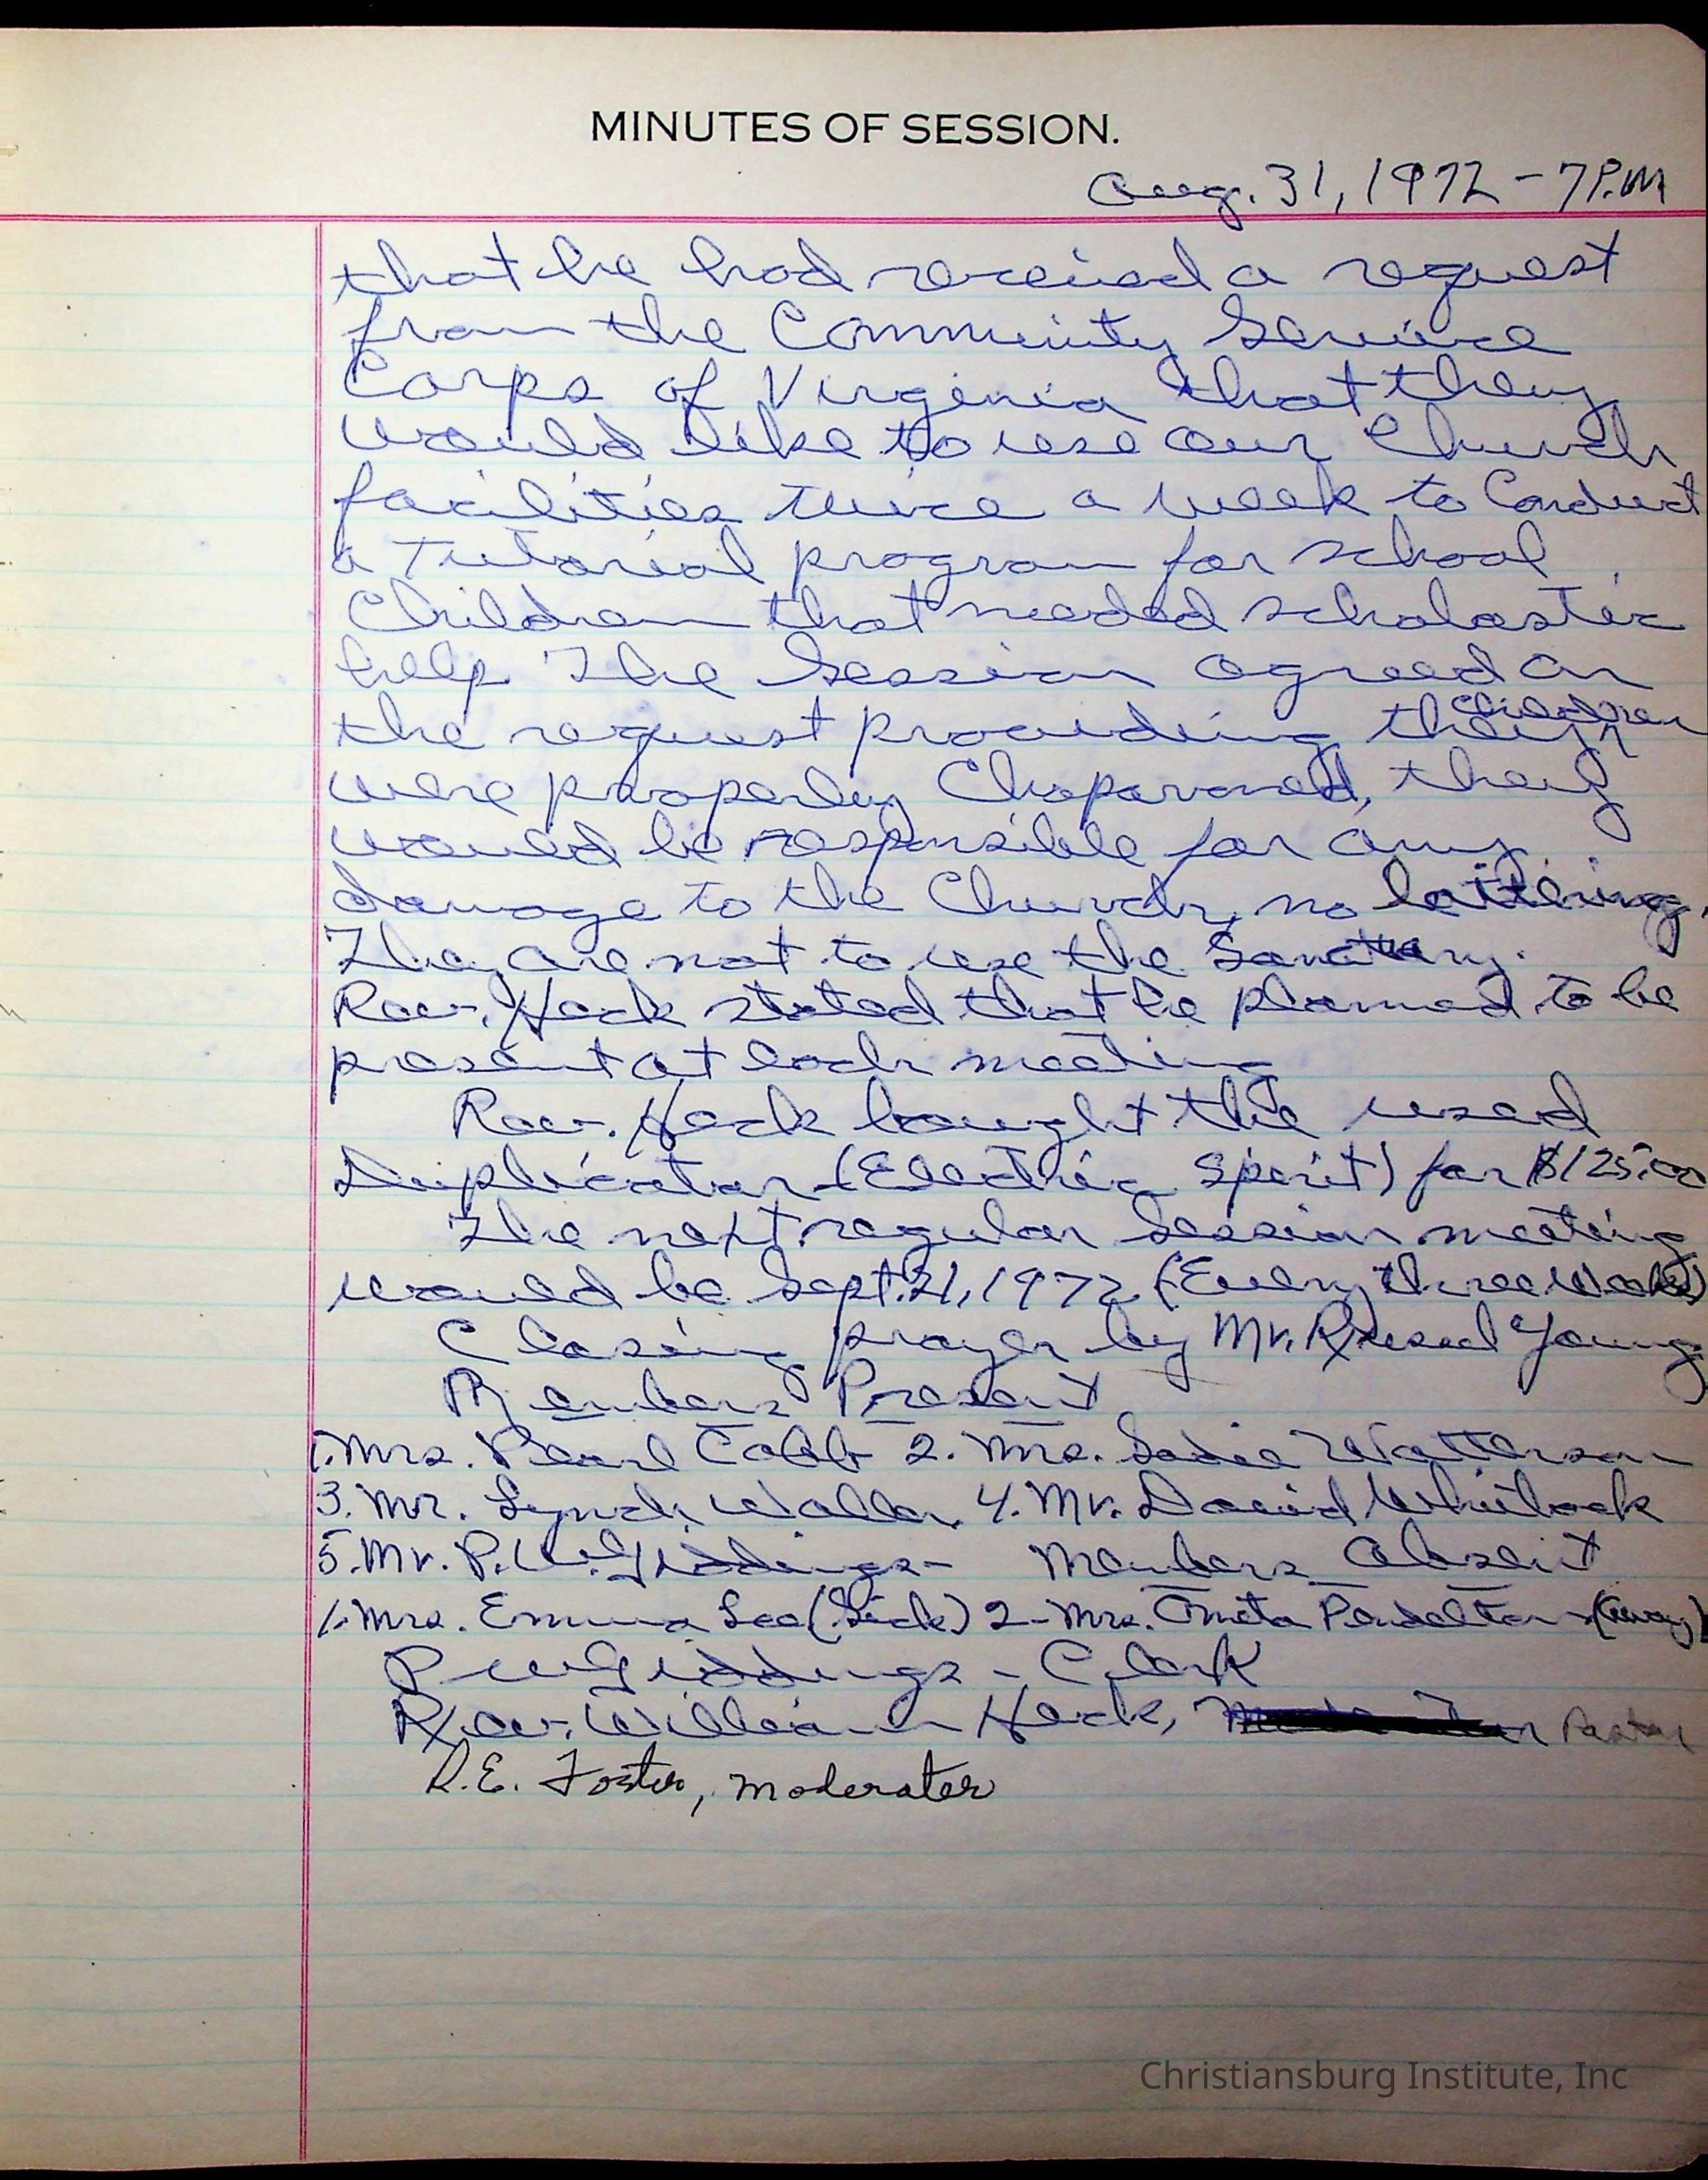 MINUTES OF SESSION.
Aug. 31, 1972 - 7P.M
that he had received a request
from the Community Service
Corps of Virginia that they
would like to use our Church
facilities twice a week to Conduct
a Tutorial program for school
Children that needed scholastic
help The Session agreed on
the request providing the children
were properly Chaparoned, they
would be responsible for any
damage to the Church, no loittering.
They are not to use the Sanctuary.
Rev. Hack stated that he planned to be
present at each meeting
Rev. Hack bought the used
Duplicator (Electric Spirit) for $125.00
The next regular Session meeting
would be Sept. 21, 1972 (Every three Weeks)
Closing prayer by Mr. Young
Members Present
1. Mrs. Pearl Cobb 2. Mrs. Sadie Watterson
3. Mr. Lynch Waller 4. Mr. David Whitlock
5. Mr. P.W. Giddings - Members Absent
1. Mrs. Emma Lee (Sick) 2 - Mrs. Ometa Pendelton (Away)
P W Giddings - Clerk
Rev. William Hack, Pastor
R.E. Foster, moderator
Christiansburg Institute, Inc